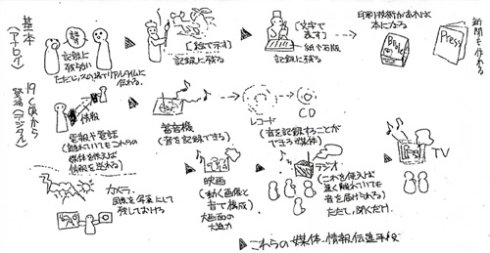 基本
(アナログ)
記録に
残らない
[絵で示す]
記録に残る
[文字で
表す]
紙や石版
記録に残る
印刷技術があれば
本になる
Bible
新聞も作れる
Press
19c頃から
登場(デジタル)
情報
電報や電話
(離れていてもこれらの
媒体を使えば
情報を送れる)
蓄音機
(音を記録できる)
レコード
CD
(音を記録することが
できる媒体)
カメラ
写真にして
残しておける
映画
(動く画像と
音で構成)
大画面の
大迫力
ラジオ
(これを使えば
遠く離れていても
音を届けられる)
ただし、聞くだけ。
TV
これらの媒体・情報伝達手段